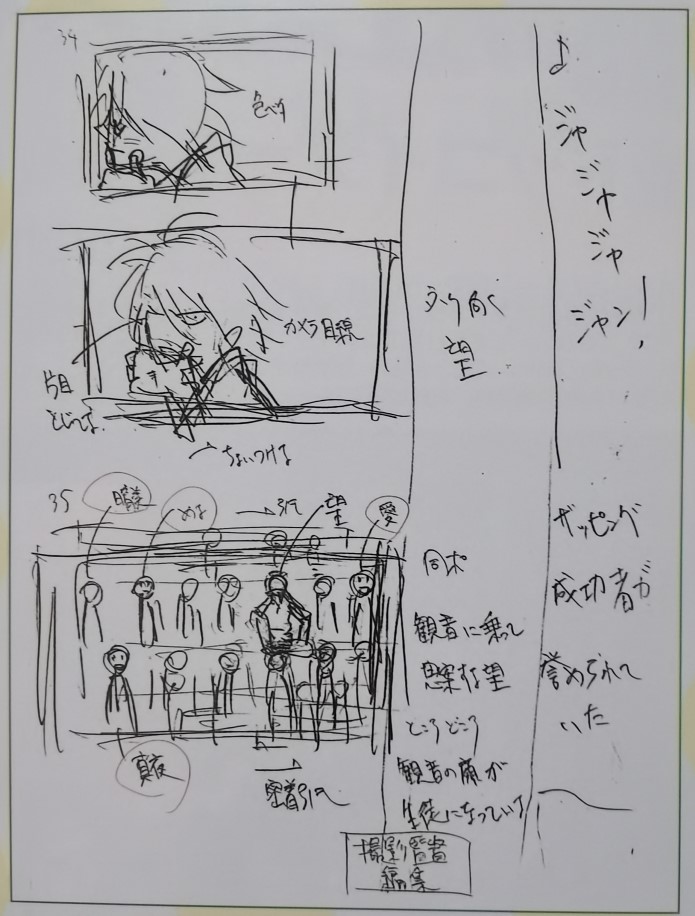 34
色ベタ
カメラ目線
片目
とじてる
ちょいつけな
ふり向く
望
♪
ジャ
ジャ
ジャ
ジャン!
35
臑荼
める
→引て
望
愛
真夜
→
密着引て
同ポ
観音に乗って
思案する望
ところどころ
観音の顔が
生徒になっている
ザッピング
成功者が
誉められて
いた
撮影監督
編集